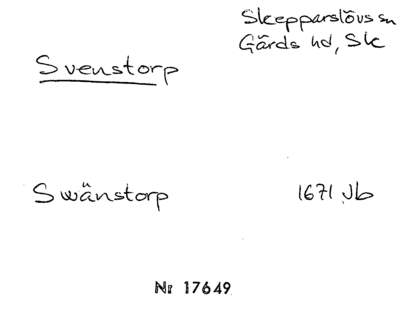 Skepparslövs sn
Gärds hd, Sk
Svenstorp
Swänstorp 1671 Jb
Nr 17649